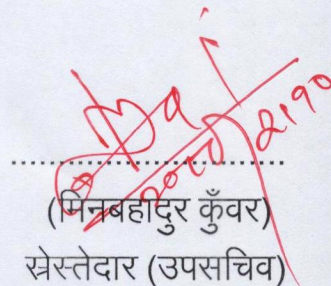 (मिनबहादुर कुँवर)
स्रेस्तेदार (उपसचिव)